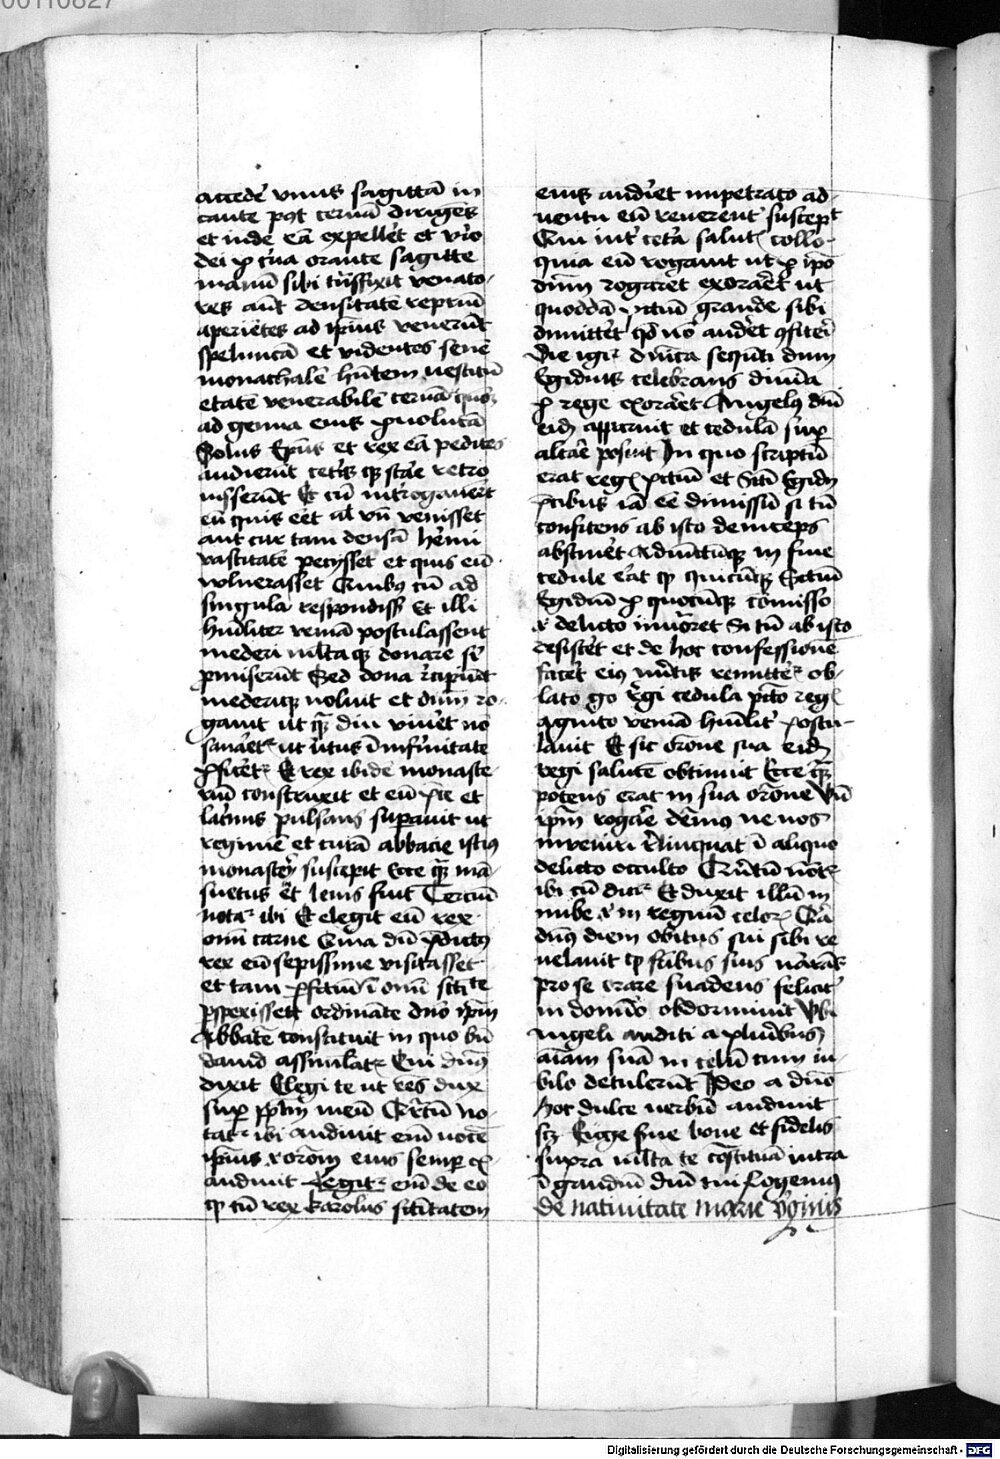 00110827
accedē vnus sagittā in
caute post ceruā dirigēs
et inde eā expellēt et viro
dei p cua orante sagitte
manū sibi
res aūt densitatē repriū
aperiētes ad ipsius venerūt
speluncā et videntes senē
monachalē hūtem vestitū
etate venerabilē ceruā
ad genua eius puolutā
Solus Epūs et rex eā pedites
audierūt retro
iusserūt Et cū introgauerīt
eū quis eēt aī vn venisset
aut cur tam densā hemi
vastitatē petysset et quis eū
volnerasset Quibus cū ad
singula respondissz Et illi
humiliter veniā postulassent
mederi multaqz donare se
pmiserūt Sed dona recipiūt
mederiqz noluit et dum ro-
gauit ut qz diu viuēt nō
sanaret ut vtus infirmitate
pficeret Et rex ibidē monaste
riū construxit et eū pce et
lacrimis pulsans superauit ut
regimē et curā abbacie istius
monastery suscepit Ecce qz mā
suetus et lenis fuit Terciū
notar ibi Et elegit eū rex
omī carne Quia dū pdictus
rex eū sepissime visitasset
et tam pfectū in omī scitate
pspexissett ordinate dnō ipm
Abbatē constituit in quo bn̄
dauid assimilatr Cui dnūs
dixit Elegi te ut eēs dux
sup pplm meū Quartū no-
tatr ibi audiuit eniū vocē
ipsius et orōm eius semper ex
audiuit Legitr eniū de eo
qz cū rex karolus scītatem
eius audiret impetrato ad-
uentu eū reuerent suscepit
Qui int cetā salutis collo-
quia eū rogauit ut p ipō
dnm rogaret exoraret ut
quoddā pctū grande sibi
dimitteret qd nō audet cfiteri
Die igit dnica sequēti dum
Egidius celebrans diuina
p rege exoraret Angelus dnī
eidē apparuit et cedulā super
altare posuit In quo scriptū
erat regis pctū et Scī Egidij
pcibus iā eē dimissū si tū
confitens ab isto deinceps
abstineret Adiunctūqz in fine
cedule erat qz quicūqz Sctūm
Egidiū p quocūqz comisso
delicto inuoret Si tū ab isto
desisteret et de hoc confessionē
faceret eius meritis remitteretur ob-
lato go regi cedula pcto regis
agnito veniā humilit postu-
lauit Et sic orōne sua eidē
regi salutē obtinuit Ecce qz
potens erat in sua orōne Vn̄
ipm rogare dēmus ne nos
inueniri relinquat i aliquo
delicto occulto Quintū notr
ibi cū dicitr Et duxit illū in
nube et in regnū celorum Quia
dnūs diem obitus sui sibi re
uelauit qz fratribus suis narrās
pro se orare suadens felicit
in domino obdormiuit Vbi
angeli auditi a pluribus
aīam suā in celū cum iu-
bilo detulerunt Ideo a dnō
hoc dulce verbū audiuit
scz Euge serue bone et fidelis
supra multa te constituā intra
i gaudiū dnī tui Rogemus
de natiuitate marie virginis
Digitalisierung gefördert durch die Deutsche Forschungsgemeinschaft - DFG